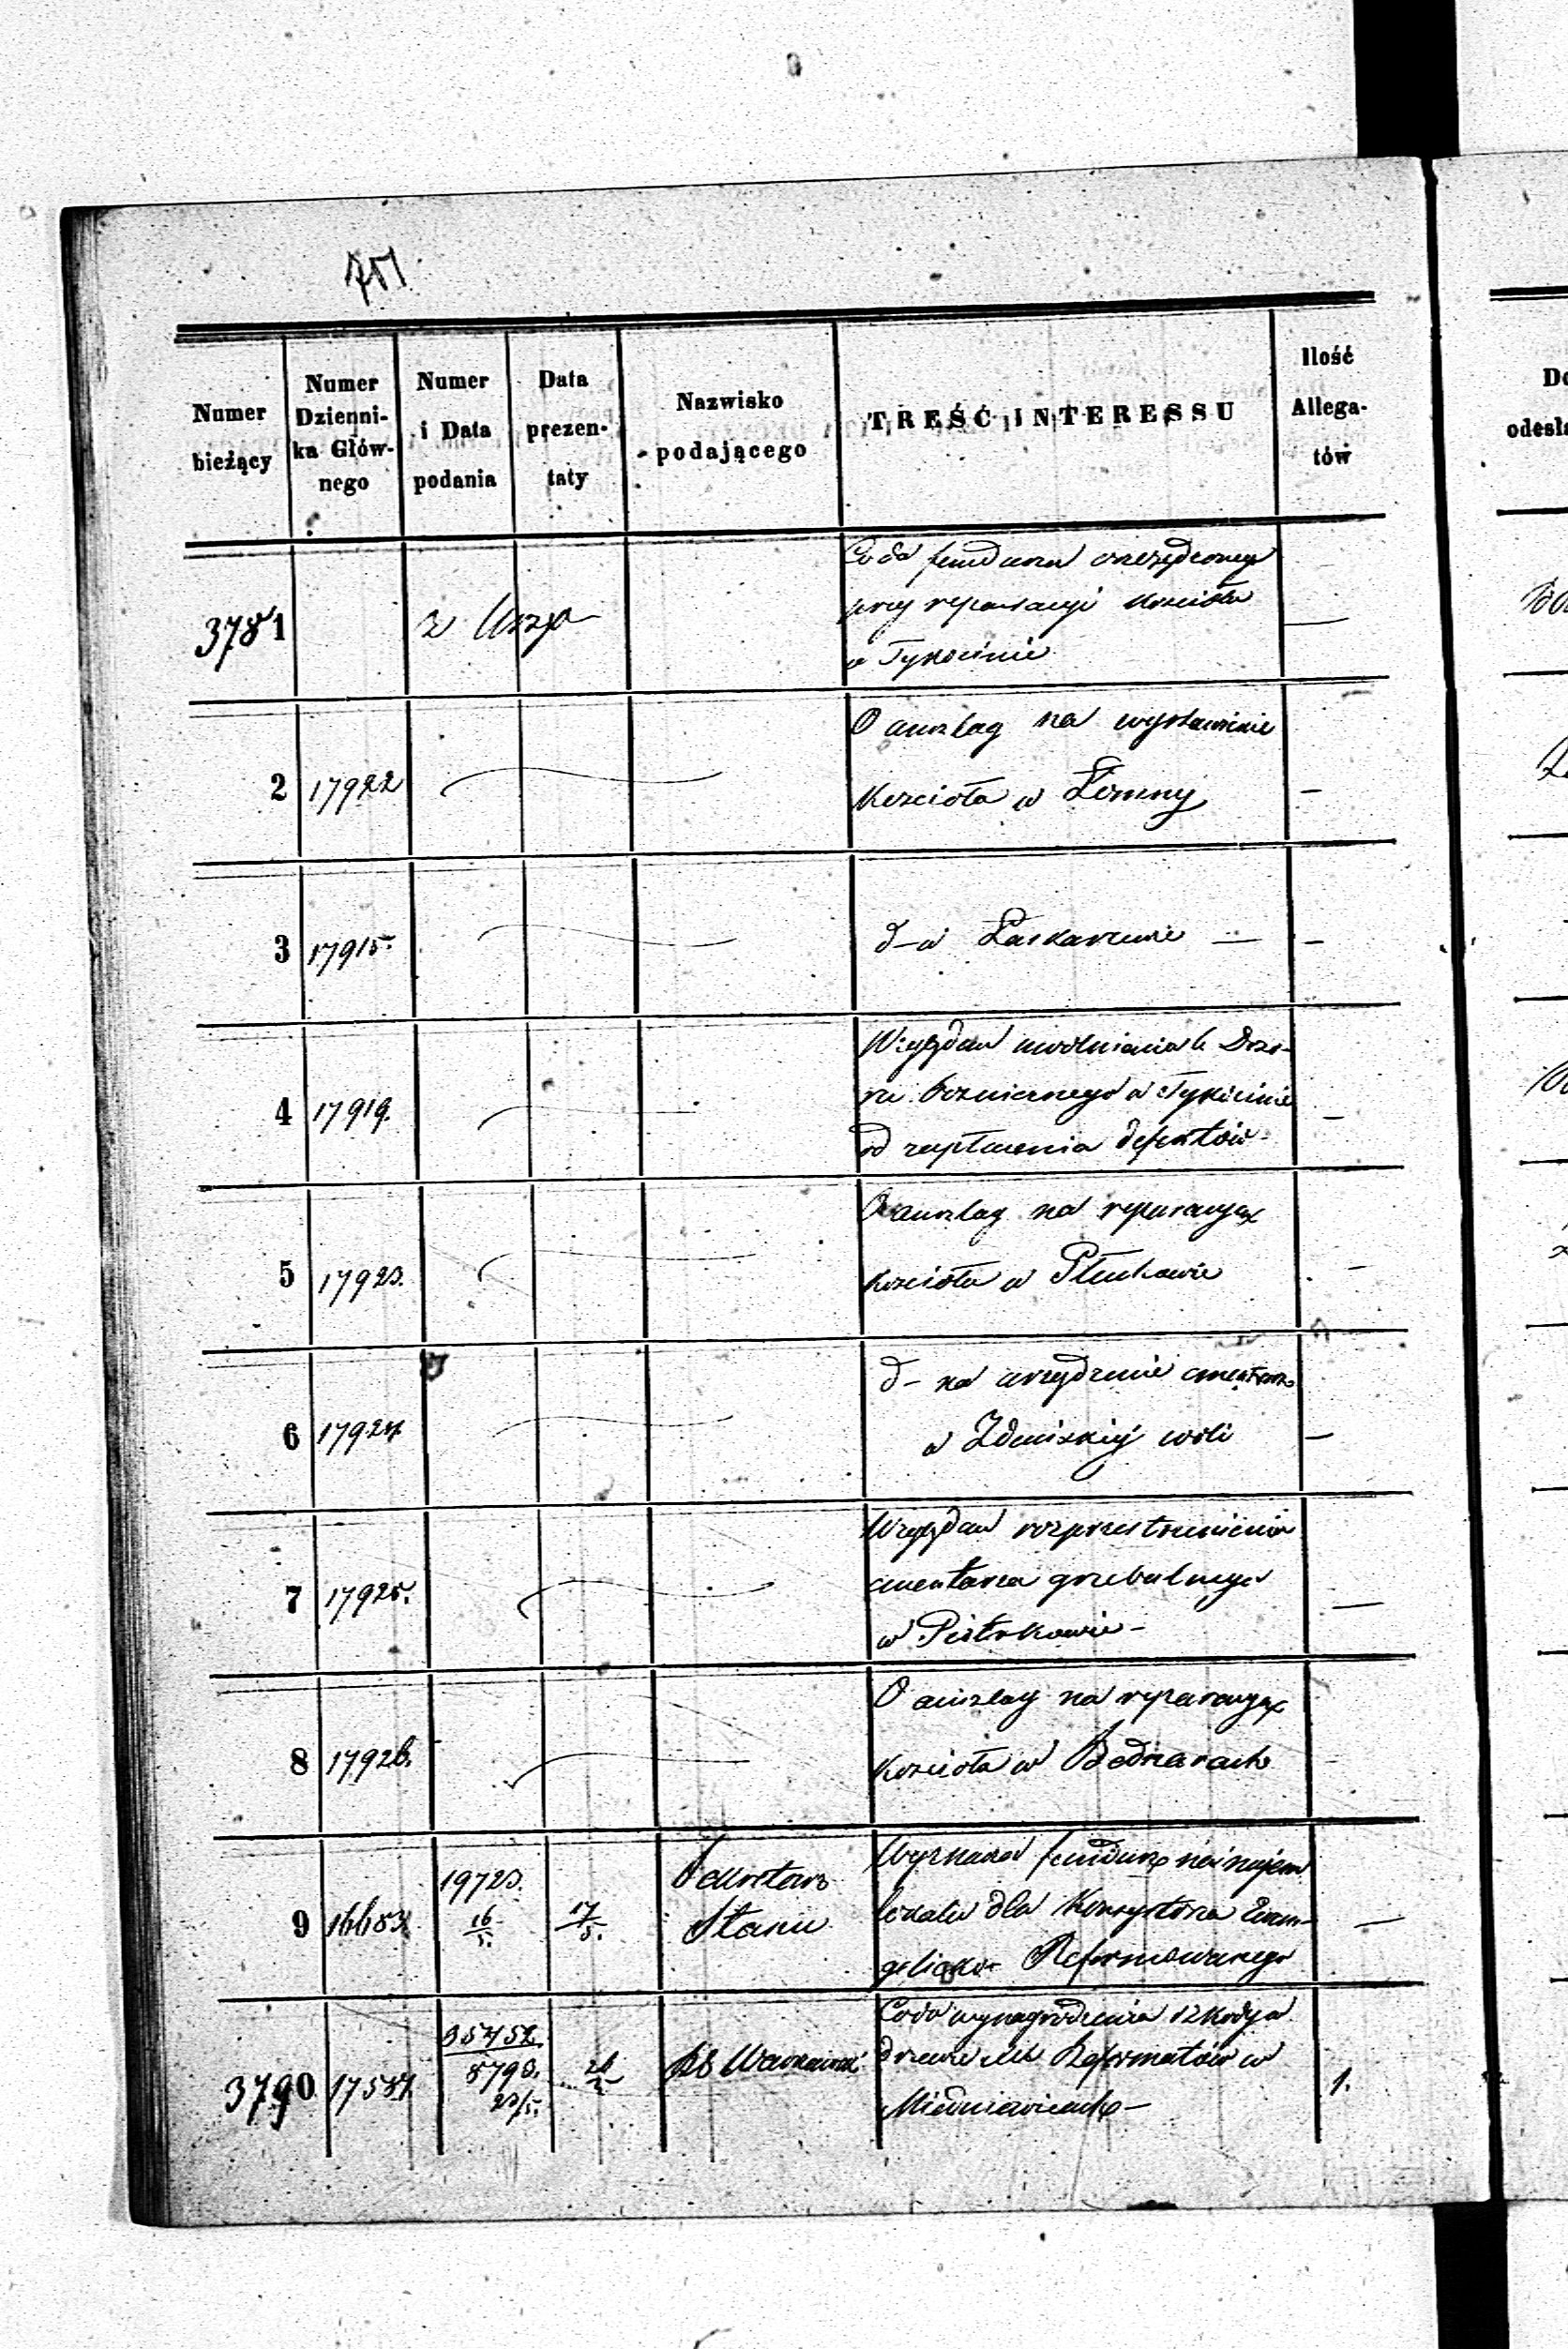 Numer bieżący
Numer Dzienni-
ka Głów-
nego
Numer
i Data
podania
Data
prezen-
taty
Nazwisko
podającego
TREŚĆ INTERESSU
Ilość
Allega-
tów
Do
odesła
3781
z
Co do funduszu
przy reparacyi Kościoła
w Tykocinie
2 17922
O anszlag na wystawienie
Kościoła w Łomny
3 17915.
d-o w Łaskarzewie
4 17919.
Względem uwolnienia b. Dozo-
ru bożniczego w Tykocinie
od zapłacenia defektów
5 17923.
O anszlag na reparacyą
Kościoła w
6 17924
d- na urządzenie cmentarza
w Zduńskiej woli
7 17925.
Względem rozprzestrzenienia
cmentarza grzebalnego
w Piotrkowie-
8 17926.
O anszlag na reparacyą
Kościoła w Bednarach
9
19723.
16
5.
17
5.
Sekretarz
Stanu
funduszu na najem
lokalu dla Konsystorza Ewan-
gelicko- Reformowanego
3790
8793.
23/5.
Co do wynagrodzenia szkody w
drzewie Reformatów w
Miedniewicach-
1.